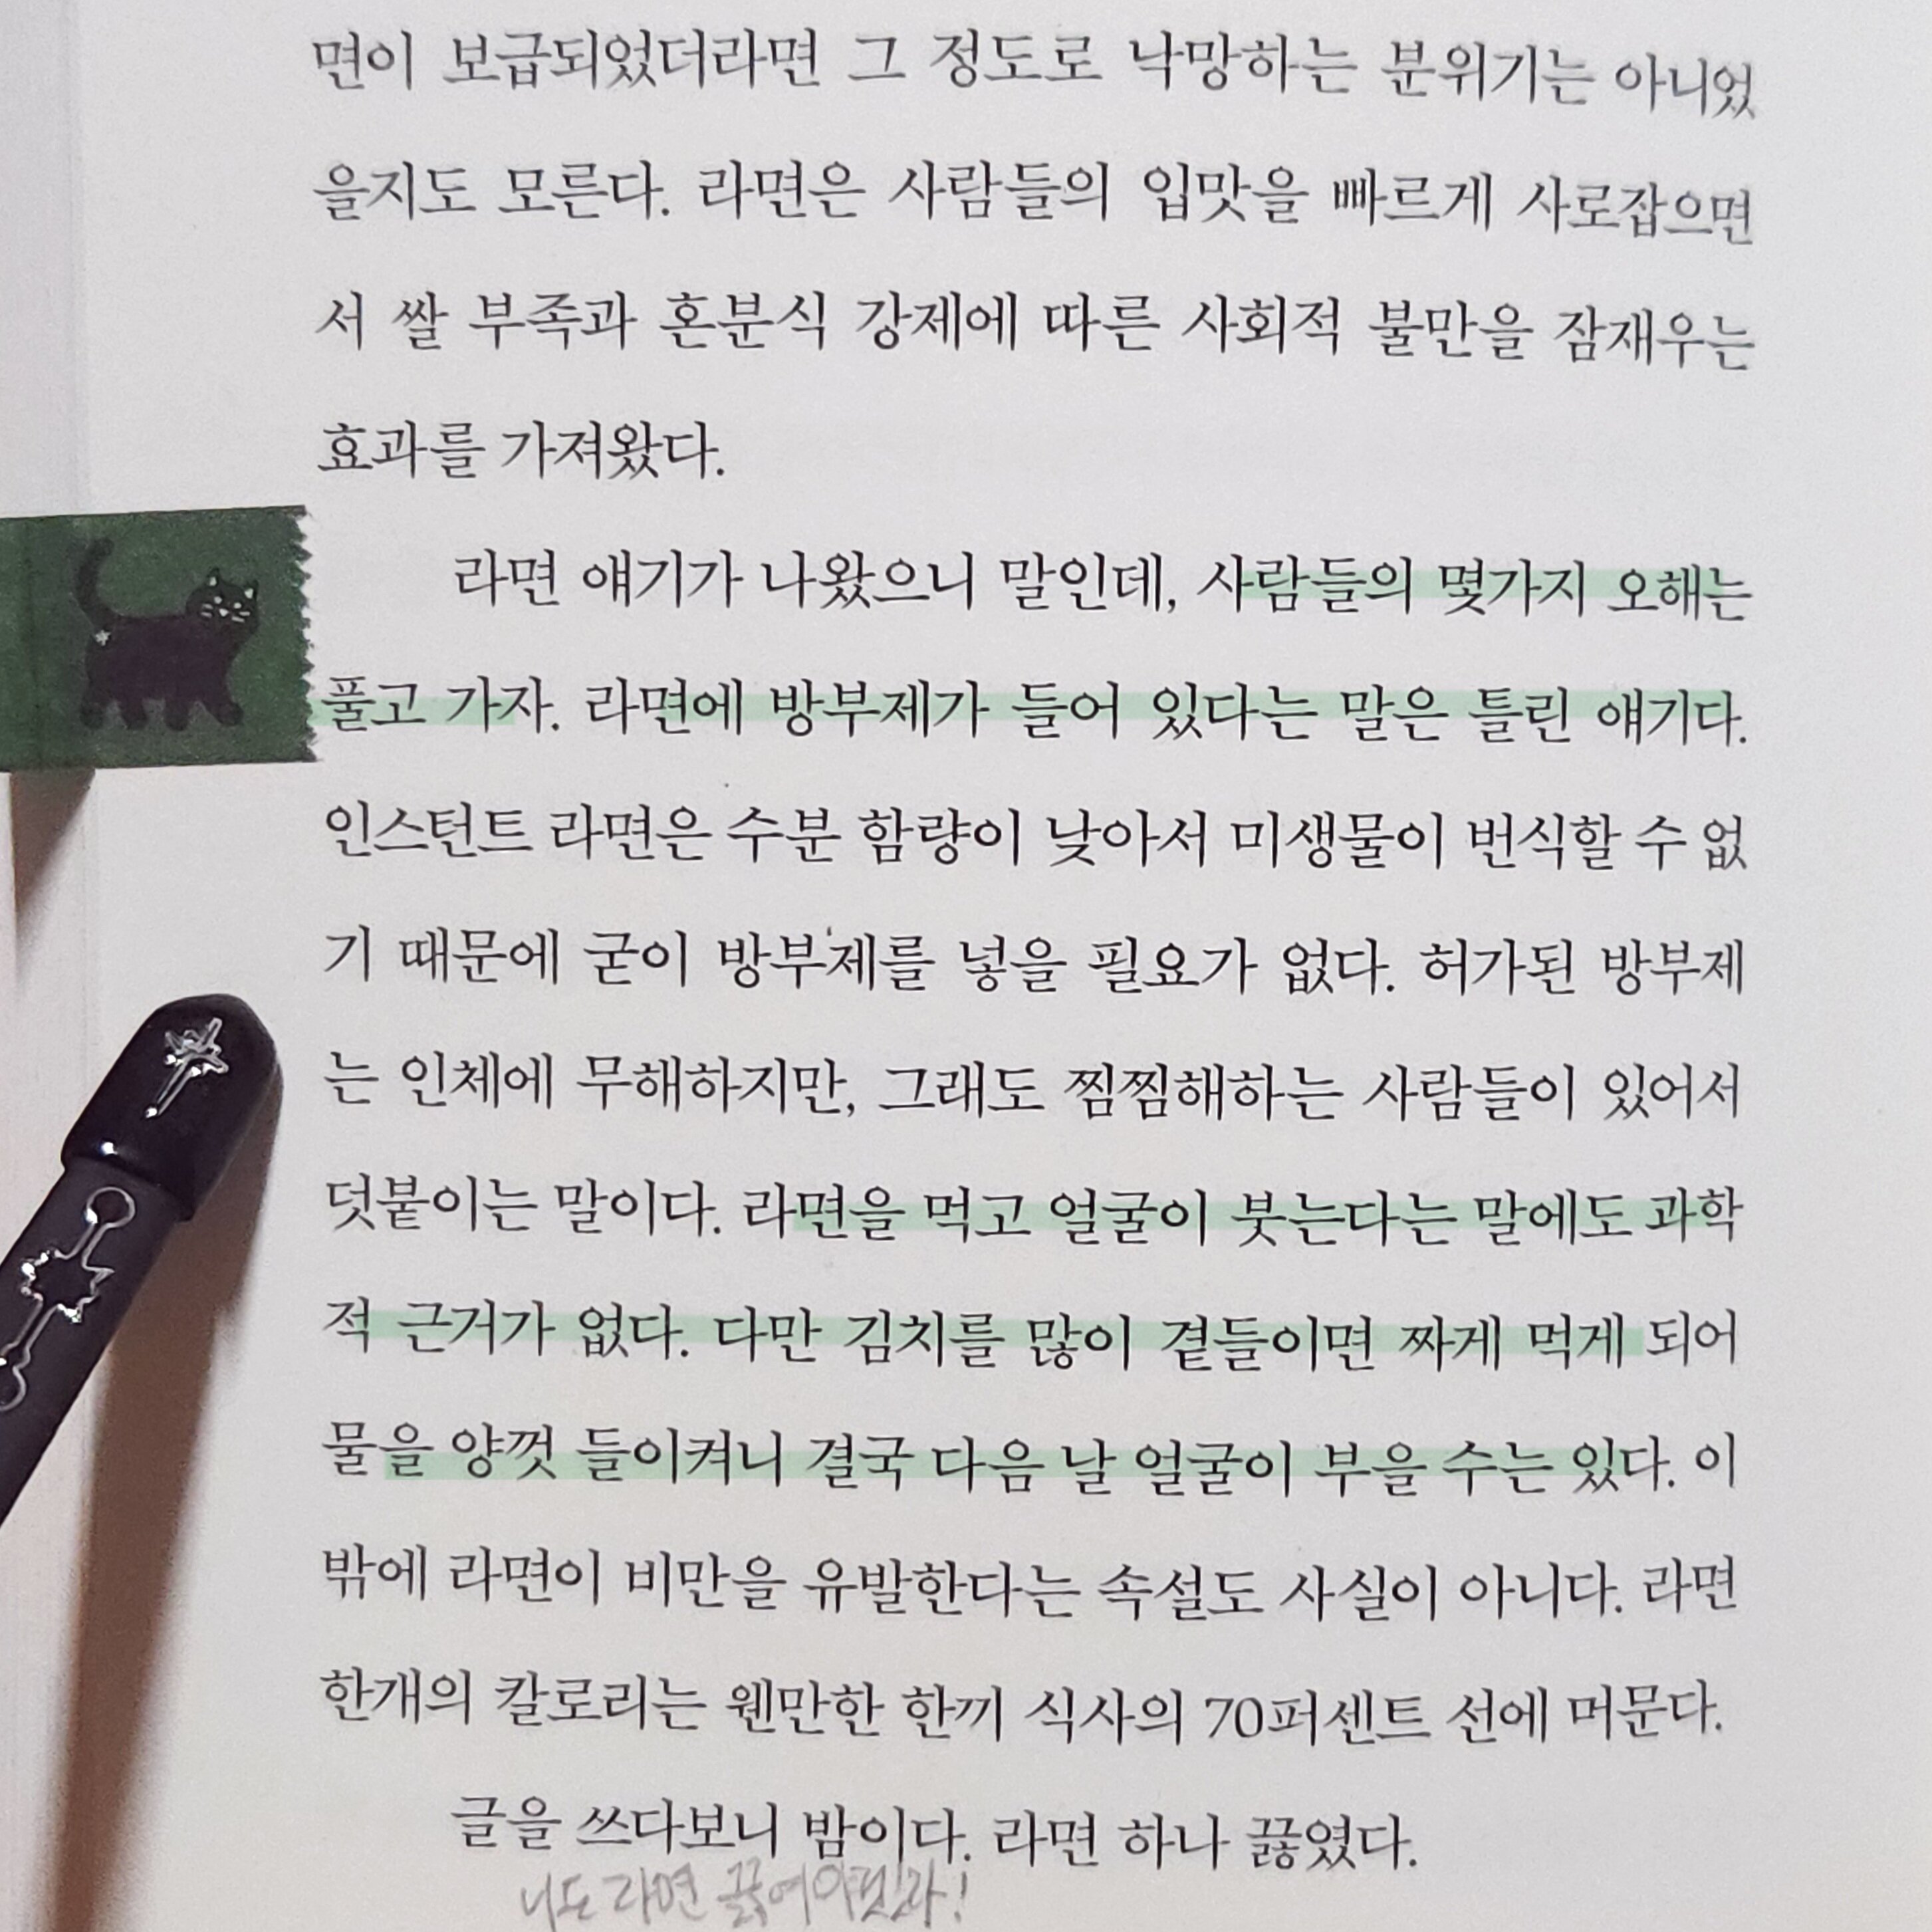 면이 보급되었더라면 그 정도로 낙망하는 분위기는 아니었
을지도 모른다. 라면은 사람들의 입맛을 빠르게 사로잡으면
서 쌀 부족과 혼분식 강제에 따른 사회적 불만을 잠재우는
효과를 가져왔다.
라면 얘기가 나왔으니 말인데, 사람들의 몇가지 오해는
풀고 가자. 라면에 방부제가 들어 있다는 말은 틀린 얘기다.
인스턴트 라면은 수분 함량이 낮아서 미생물이 번식할 수 없
기 때문에 굳이 방부제를 넣을 필요가 없다. 허가된 방부제
는 인체에 무해하지만, 그래도 찜찜해하는 사람들이 있어서
덧붙이는 말이다. 라면을 먹고 얼굴이 붓는다는 말에도 과학
적 근거가 없다. 다만 김치를 많이 곁들이면 짜게 먹게 되어
물을 양껏 들이켜니 결국 다음 날 얼굴이 부을 수는 있다. 이
밖에 라면이 비만을 유발한다는 속설도 사실이 아니다. 라면
한개의 칼로리는 웬만한 한끼 식사의 70퍼센트 선에 머문다.
글을 쓰다보니 밤이다. 라면 하나 끓였다.
라면